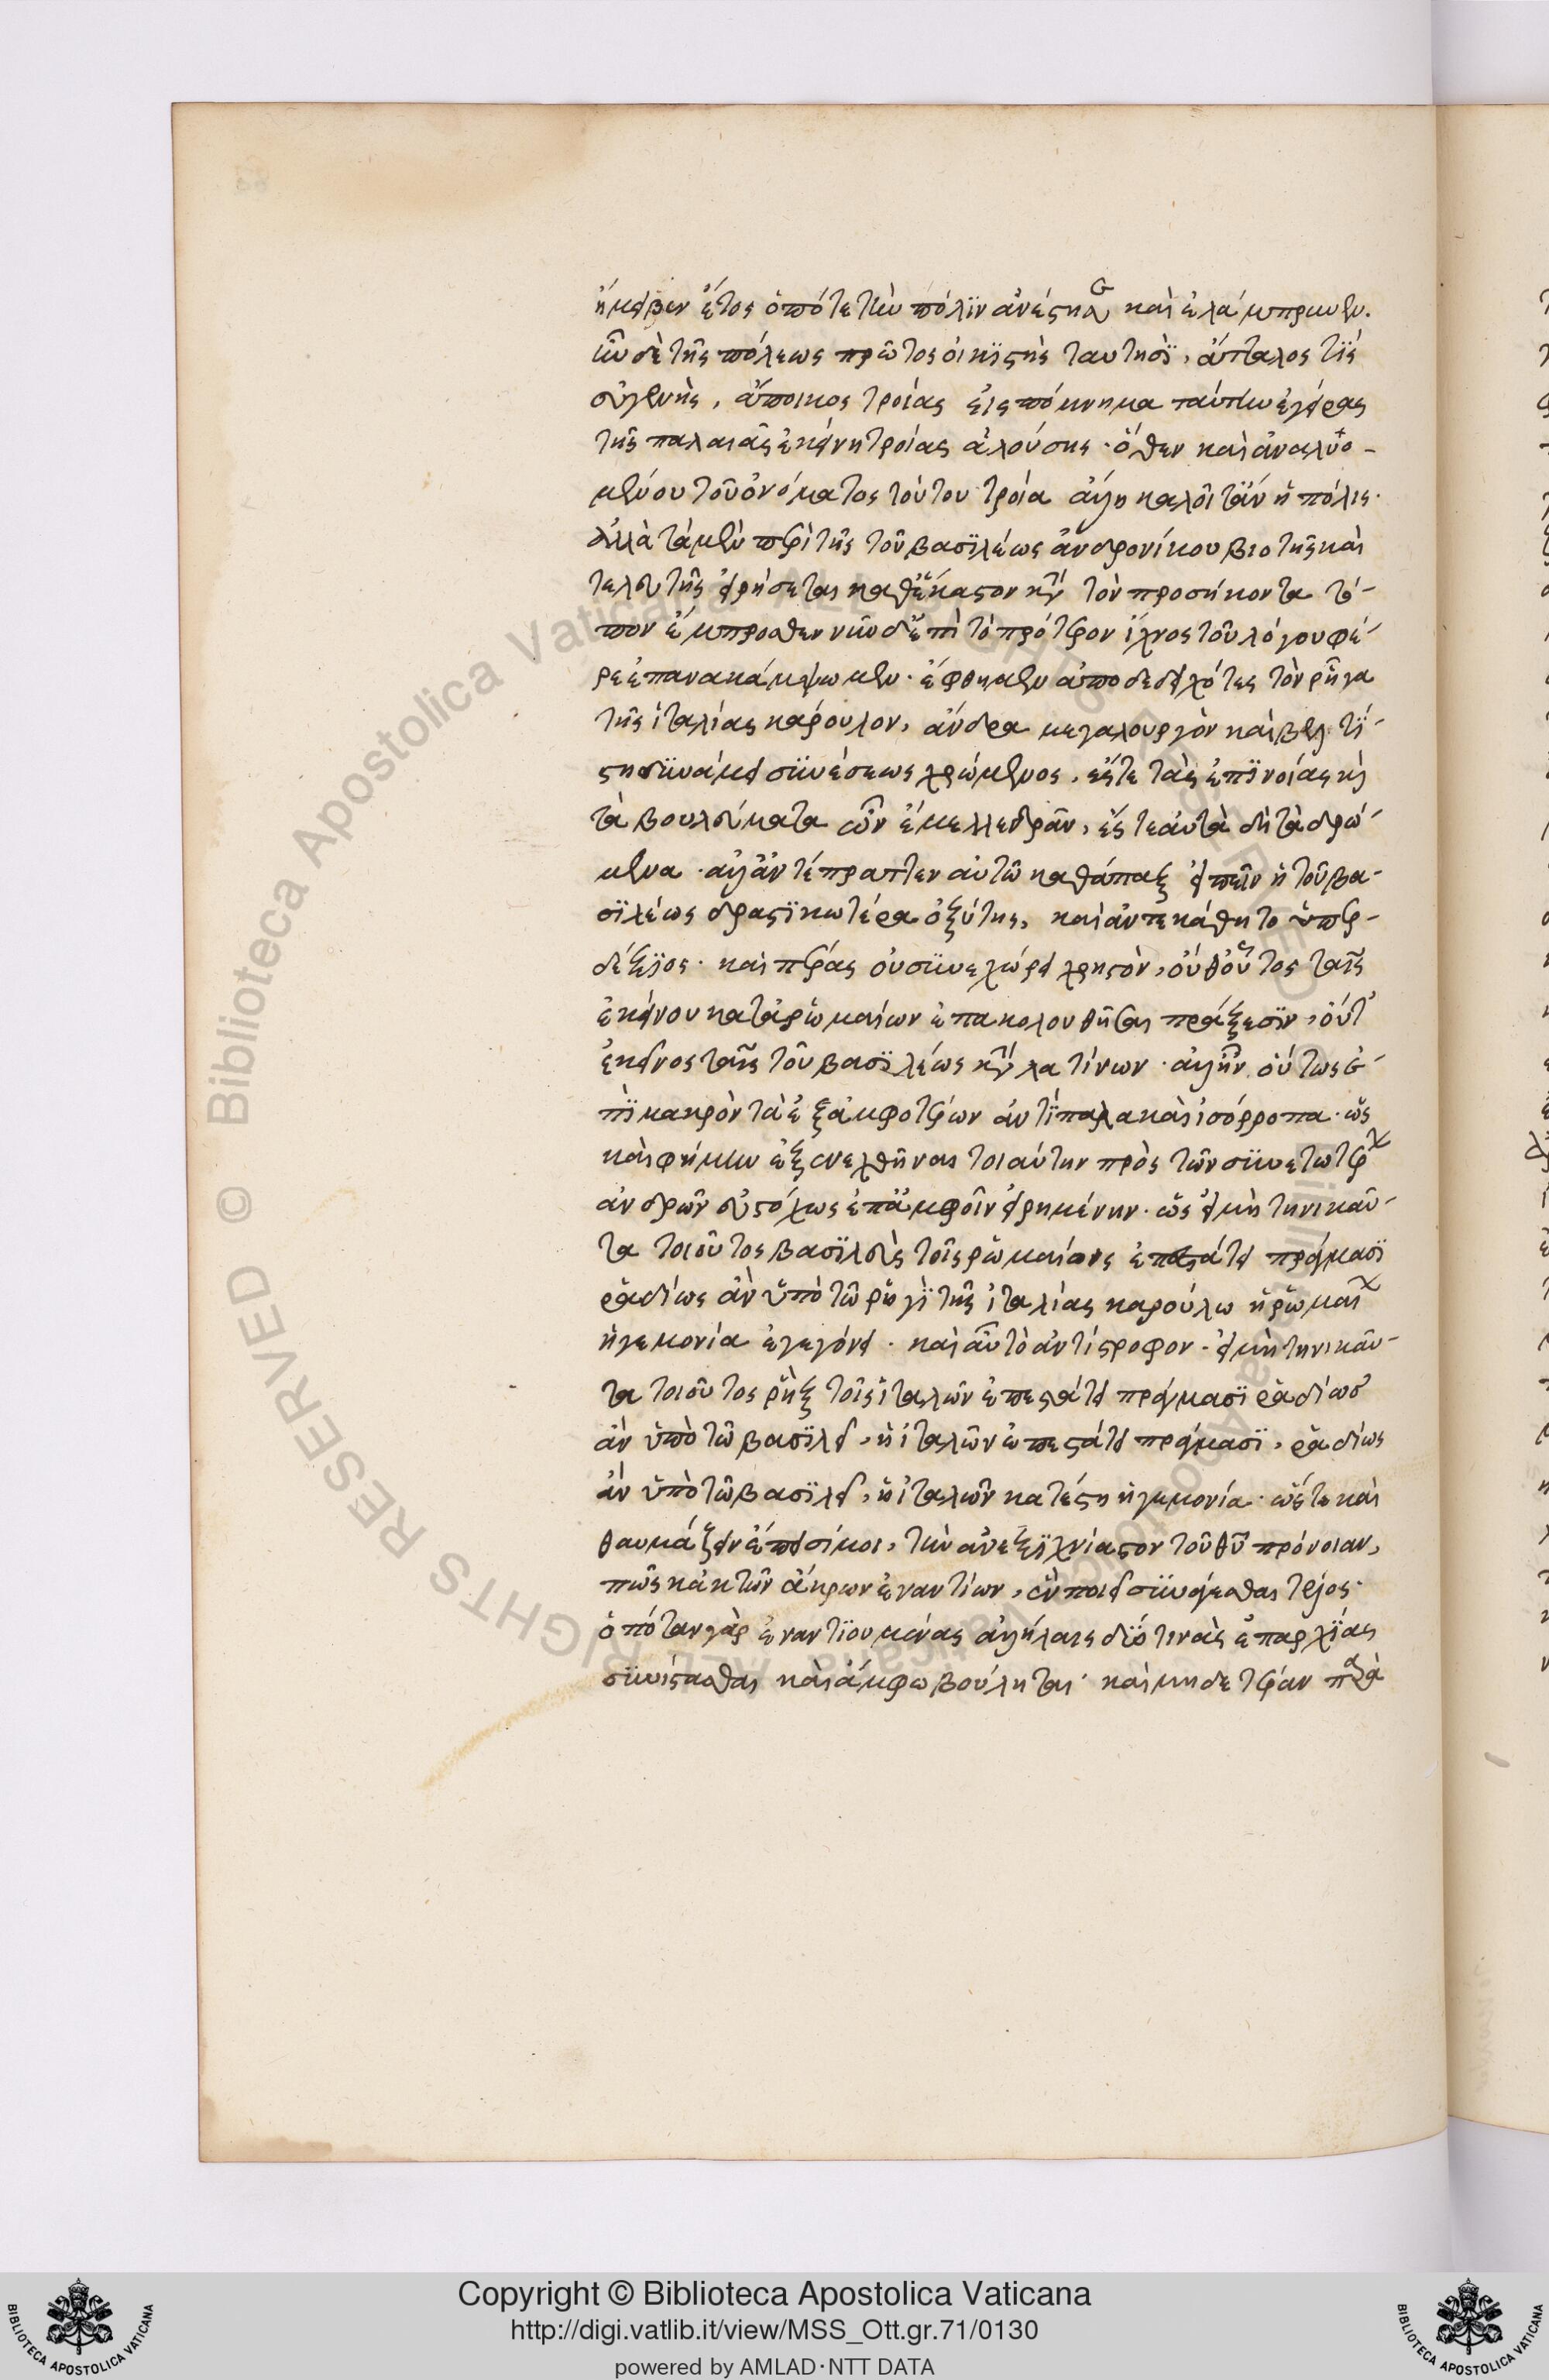 ἤμειβεν ἔτος ὁπότε τὴν πόλϊν ἀνέστησε καὶ ἐλάμπρυνεν.
ἦν δὲ τῆς πόλεως πρῶτος οἰκϊστὴς ταυτησὶ, ἄτταλος τΐς
εὐγενὴς, ἄποικος τροίας εἰς πόμνημα ταύτην ἐγείρας
τῆς παλαιᾶς ἐκείνη τροίας ἁλούσης. ὅθεν καὶ ἀναλυο-
μένου τοῦ ὀνόματος τούτου τροία ἄλλη καλοῖτ' ἂν ἡ πόλις.
ἀλλὰ τὰ μὲν περὶ τῆς τοῦ βασϊλέως ἀνδρονίκου βιοτῆς καὶ
τελευτῆς εἰρήσεται καθέκαστον κατὰ τὸν προσήκοντα τό-
πον ἔμπροσθεν νῦν δ' ἐπὶ τὸ πρότερον ἴχνος τοῦ λόγου φέ-
ρε ἐπανακάμψωμεν. ἔφθημεν ἀποδεδειχότες τὸν ῥῆγα
τῆς ἰταλίας κάρουλον, ἄνδρα μεγαλουργὸν καὶ βελτΐ-
στη δυνάμει συνέσεως χρώμενος, ἔς τε τὰς ἐπϊνοίας καὶ
τὰ βουλεύματα ὧν ἔμελλε δρᾶν, ἔς τε αὐτὰ δὴ τὰ δρώ-
μενα. ἀλλ' ἀντέπραττεν αὐτῶ καθάπαξ εἰπεῖν ἡ τοῦ βα-
σϊλέως δραστϊκωτέρα ὀξύτης, καὶ ἀντεκάθητο ὑπερ-
δέξϊος. καὶ πέρας οὐ συνεχώρει χρηστὸν, οὔθ' οὗτος ταῖς
ἐκείνου κατὰ ῥωμαίων ἐπακολουθῆσαι πράξεσϊν, οὔτ'
ἐκεῖνος ταῖς τοῦ βασϊλέως κατὰ λατίνων. ἀλλ' ἦν οὕτως ἐ-
πϊμακρὸν τὰ ἐξ ἀμφοτέρων ἀντΐπαλα καὶ ἰσόρροπα. ὡς
καὶ φήμην ἐξενεχθῆναι τοιαύτην πρὸς τῶν συνετωτέρων
ἀνδρῶν εὐστόχως ἐπ' ἀμφοῖν εἰρημένην. ὡς εἰ μὴ τηνικαῦ-
τα τοιοῦτος βασϊλεὺς τοῖς ῥωμαίοις ἐπεστάτει πράγμασϊ
ῥαδίως ἂν ὑπὸ τῶ ῥηγῒ τῆς ἰταλίας καρούλω ἡ ῥωμαίων
ἡγεμονία ἐγεγόνει. καὶ αὖ τὸ ἀντίστροφον. εἰ μὴ τηνικαῦ-
τα τοιοῦτος ῥὴξ τοῖς ἰταλῶν ἐπεστάτει πράγμασϊ ῥαδίως
ἂν ὑπὸ τῶ βασϊλεῖ, ἡ ἰταλῶν ἐπεστάτει πράγμασϊ, ῥαδίως
ἂν ὑπὸ τῶ βασϊλεῖ, ἡ ἰταλῶν κατέστη ἡγεμονία. ὥστε καὶ
θαυμάζειν ἔπεισί μοι, τὴν ἀνεξϊχνίαστον τοῦ θυ πρόνοιαν,
πῶς κἀκ τῶν ἄκρων ἐναντίων, ἓν ποιεῖ συνάγεσθαι τέλος.
ὁπόταν γὰρ ἐναντϊουμένας ἀλλήλαις δύο τινὰς ἐπαρχΐας
συνίστασθαι καὶ ἄμφω βούληται. καὶ μηδετέραν παρὰ